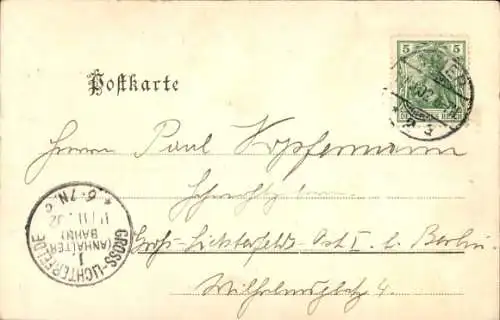 Postkarte
5 5
DEUTSCHES REICH
Herrn Paul Hopfermann
Gross-Lichterfelde-Ost I. b. Berlin.
Wilhelmsplatz 4.
GROSS-LICHTERFELDE
(ANHALTER
BAHN)
1.
* 6-7N. c